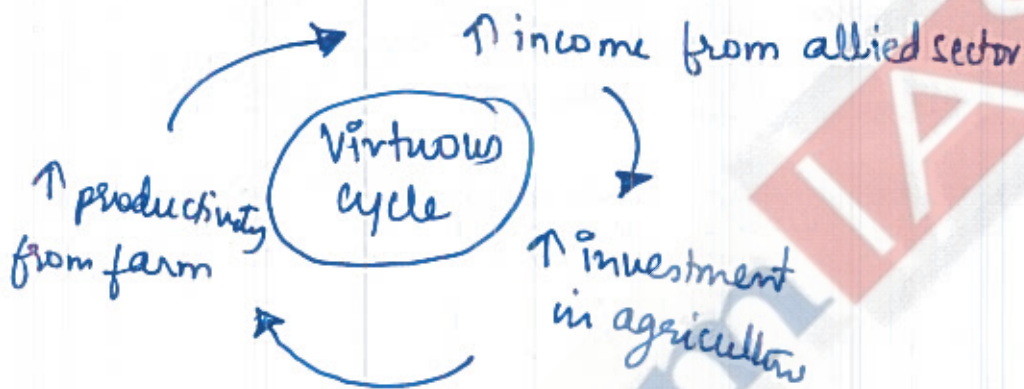 ↑ income from allied sector
Virtuous
cycle
↑ productivity
from farm
↑ investment
in agriculture
IAS
m